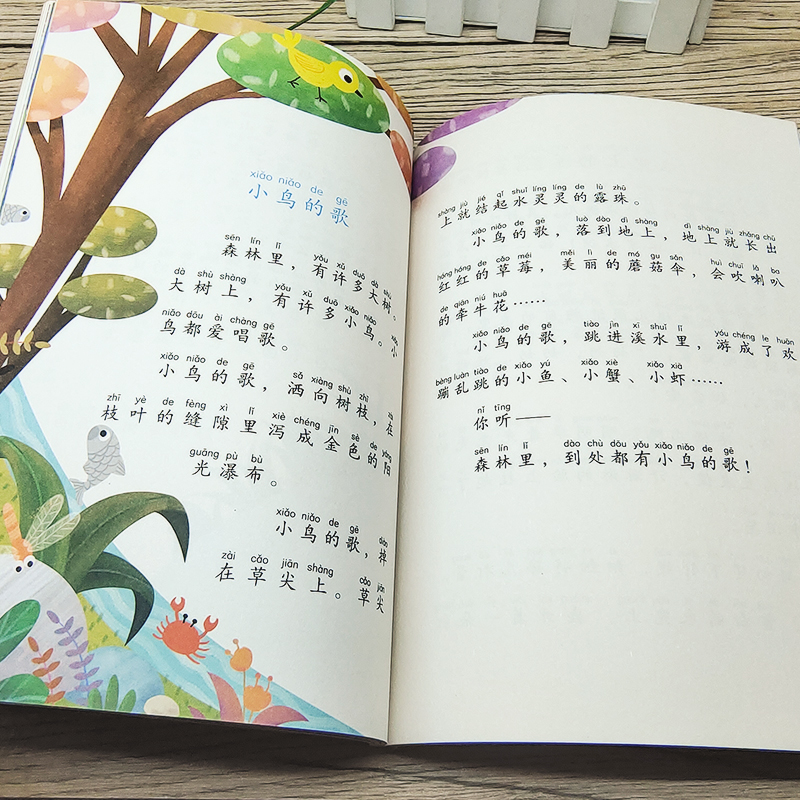 xiǎo niǎo de gē
小鸟的歌
sēn lín lǐ yǒu xǔ duō dà shù
森林里，有许多大树。
dà shù shàng yǒu xǔ duō xiǎo niǎo xiǎo
大树上，有许多小鸟。小
niǎo dōu ài chàng gē
鸟都爱唱歌。
xiǎo niǎo de gē sǎ xiàng shù zhī zài
小鸟的歌，洒向树枝，在
zhī yè de fèng xì lǐ xiè chéng jīn sè de yáng
枝叶的缝隙里泻成金色的阳
guāng pù bù
光瀑布。
xiǎo niǎo de gē diào
小鸟的歌，掉
zài cǎo jiān shàng cǎo jiān
在草尖上。草尖
shàng jiù jié qǐ shuǐ líng líng de lù zhū
上就结起水灵灵的露珠。
xiǎo niǎo de gē luò dào dì shàng dì shàng jiù zhǎng chū
小鸟的歌，落到地上，地上就长出
hóng hóng de cǎo méi měi lì de mó gu sǎn huì chuī lǎ ba
红红的草莓，美丽的蘑菇伞，会吹喇叭
de qiān niú huā
的牵牛花……
xiǎo niǎo de gē tiào jìn xī shuǐ lǐ yóu chéng le huān
小鸟的歌，跳进溪水里，游成了欢
bèng luàn tiào de xiǎo yú xiǎo xiè xiǎo xiā
蹦乱跳的小鱼、小蟹、小虾……
nǐ tīng
你听——
sēn lín lǐ dào chù dōu yǒu xiǎo niǎo de gē
森林里，到处都有小鸟的歌！